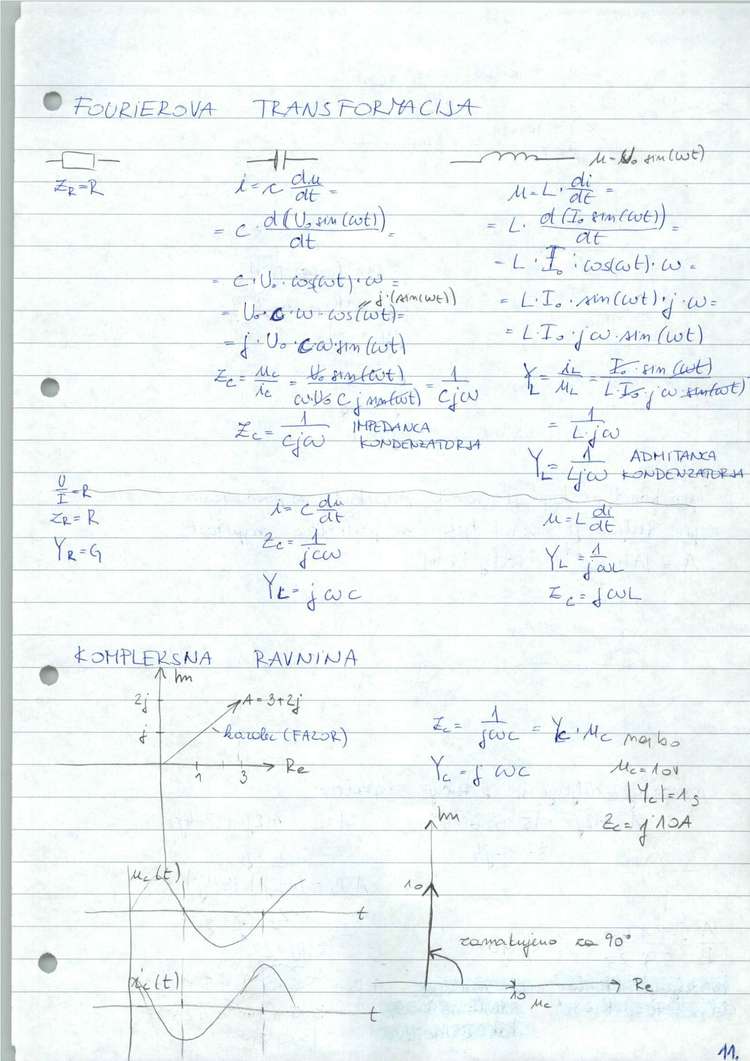 FOURIEROVA TRANSFORMACIJA
u=U₀ sin(ωt)
Z_R = R
i = C du/dt =
= C · d(U₀ sin(ωt))/dt =
= C · U₀ · cos(ωt) · ω =
j·(sin(ωt))
= U₀ · C · ω · cos(ωt) =
= j · U₀ · C ω sin(ωt)
Z_C = u_C/i_C = U₀ sin(ωt)/(ω·U₀ C j sin(ωt)) = 1/(Cjω)
Z_C = 1/(Cjω) IMPEDANCA KONDENZATORJA
u = L · di/dt =
= L · d(I₀ sin(ωt))/dt =
= L · I₀ · cos(ωt) · ω =
= L · I₀ · sin(ωt) · j · ω =
= L · I₀ · jω · sin(ωt)
Y_L = i_L/u_L = I₀ · sin(ωt)/(L · I₀ · jω sin(ωt))
= 1/(L·jω)
Y_L = 1/(Ljω) ADMITANCA KONDENZATORJA
U/I = R
Z_R = R
Y_R = G
i = C du/dt
Z_C = 1/(jCω)
Y_C = jωC
u = L di/dt
Y_L = 1/(jωL)
Z_C = jωL
KOMPLEKSNA RAVNINA
Im
2j
A = 3+2j
j
kazalec (FAZOR)
1
3
Re
Z_C = 1/(jωC) = Y_C · u_C
Y_C = jωC
u_C = 10V
|Y_C| = 1S
Z_C = j10A
u_C(t)
t
i_C(t)
t
Im
10
za 90°
10
u_C
Re
11.